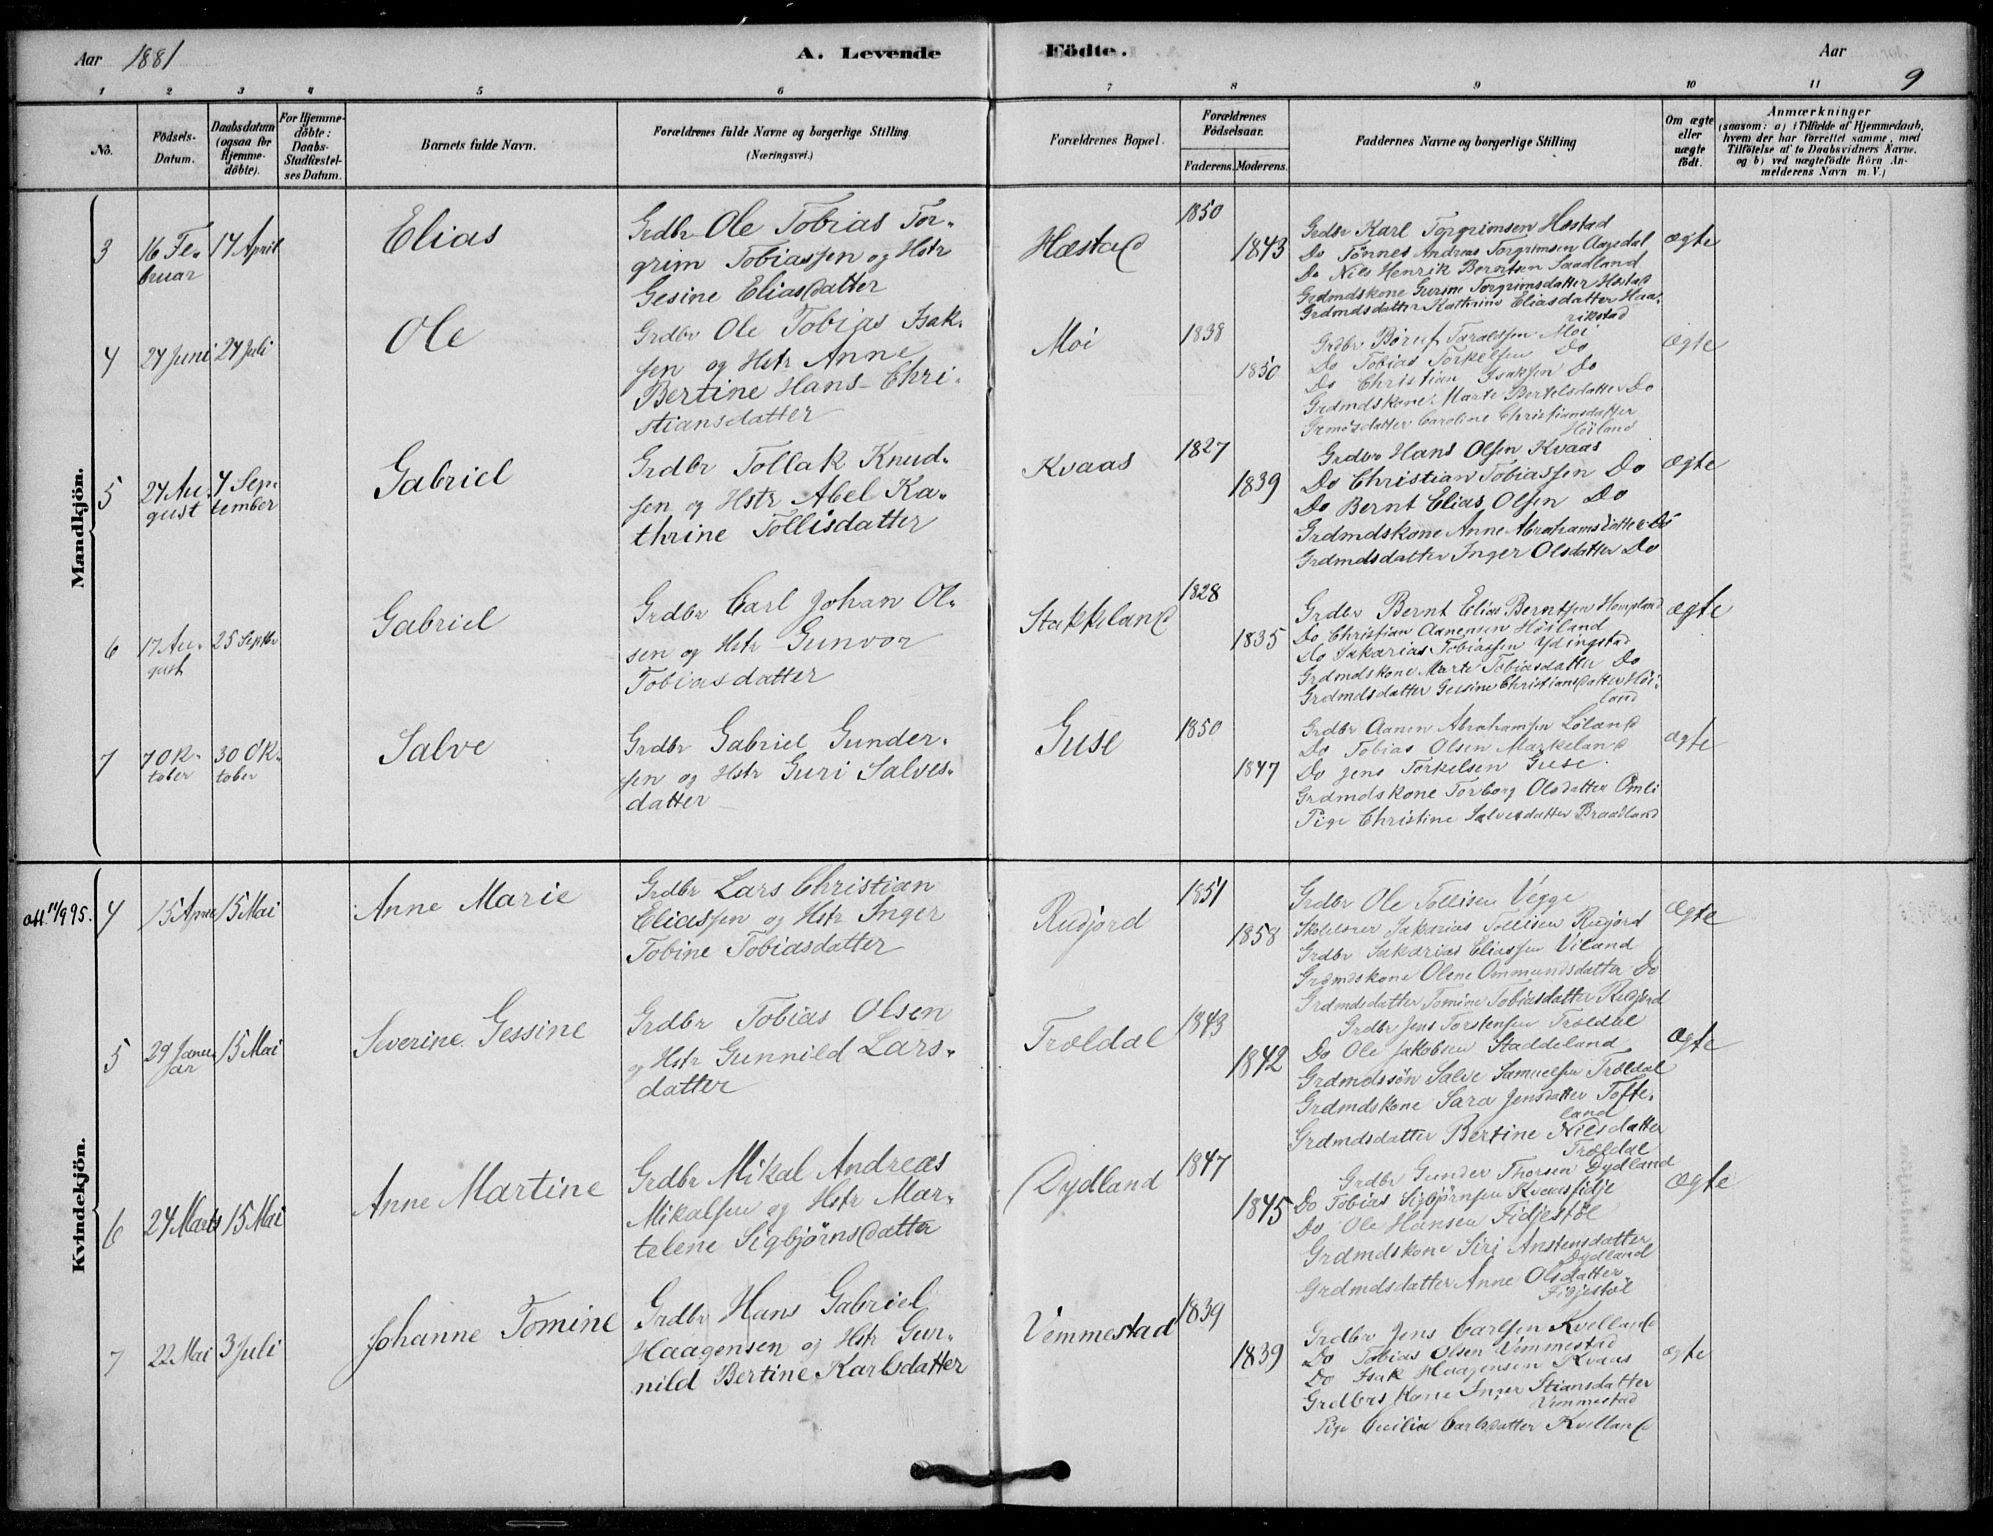 Aar 1881 A. Levende Födte. Aar 9
1 2 3 4 5 6 7 8 9 10 11
No.
Födsels-
Datum.
Daabsdatum
(ogsaa for
Hjemme-
döbte).
For Hjemme-
döbte:
Daabs-
Stadfæstel-
ses Datum.
Barnets fulde Navn.
Forældrenes fulde Navne og borgerlige Stilling
(Næringsvei.)
Forældrenes Bopæl.
Forældrenes
Födselsaar.
Faderens. Moderens.
Faddernes Navne og borgerlige Stilling
Om ægte
eller
uægte
födt.
Anmærkninger
(saasom: a) i Tilfælde af Hjemmedaab,
hvem der har forrettet samme, med
Tilföielse af to Daabsvidners Navne.
og b) ved uægtefödte Börn An-
melderens Navn m. V.)
Mandkjön.
3
16 Fe-
bruar
17 April
Elias
Grdbr Ole Tobias Tor-
grim Tobiassen og Hstr
Gesine Eliasdatter
Hæstad
1850
1843
Grdbr Karl Torgrimsen Hæstad
Do Tönnes Andreas Torgrimsen Aagedal
Do Nils Henrik Berntsen Saadland
Grdmdskone Gurine Torgrimsdatter Hæstad
Grdmdsdatter Kathrine Eliasdatter Haa-
rikstad
ægte
4
27 Juni
24 Juli
Ole
Grdbr Ole Tobias Isak-
sen og Hstr Anne
Bertine Hans-Chri-
stiansdatter
Moi
1838
1850
Grdbr Böruf Taraldsen Moi
Do Tobias Torkelsen Do
Do Christian Isaksen Do
Grdmdskone Marte Bertelsdatter Do
Grmdsdatter Caroline Christiansdatter
Höiland
ægte
5
27 Au-
gust
4 Sep-
tember
Gabriel
Grdbr Tollak Knud-
sen og Hstr Abel Ka-
thrine Tollisdatter
Kvaas
1827
1839
Grdbr Hans Olsen Kvaas
Do Christian Tobiassen Do
Do Bernt Elias Olsen Do
Grdmdskone Anne Abrahamsdatter Do
Grdmdsdatter Inger Olsdatter Do
ægte
6
17 Au-
gust
25 Septbr
Gabriel
Grdbr Carl Johan Ol-
sen og Hstr Gunvor
Tobiasdatter
Stakkeland
1828
1835
Grdbr Bernt Elias Berntsen
Do Christian Aanensen Höiland
Do Sakarias Tobiassen Ydingstad
Grdmdskone Marte Tobiasdatter Do
Grdmdsdatter Gessine Christiansdatter Höi-
land
ægte
7
7 Ok-
tober
30 Ok-
tober
Salve
Grdbr Gabriel Gunder-
sen og Hstr Guri Salves-
datter
Guse
1850
1847
Grdbr Aanen Abrahamsen Löland
Do Tobias Olsen Markeland
Do Jens Torkelsen Guse.
Grdmdskone Torborg Olsdatter Omli
Pige Christine Salvesdatter Braadland
ægte
Kvindekjön.
att 11/9 95.
4
15 April
15 Mai
Anne Marie
Grdbr Lars Christian
Eliassen og Hstr Inger
Tobine Tobiasdatter
Rudjord
1851
1858
Grdbr Ole Tollisen Vegge
Skolelærer Sakarias Tollisen Rudjord
Grdbr Sakarias Eliassen Viland
Grdmdskone Olene Ommundsdatter Do
Grdmdsdatter Tomine Tobiasdatter Rudjord
Ægte
5
29 Janu-
ar
15 Mai
Severine Gessine
Grdbr Tobias Olsen
og Hstr Gunnild Lars-
datter
Troldal
1843
1842
Grdbr Jens Torstensen Troldal
Do Ole Jakobsen Staddeland
Grdmdssön Salve Samuelsen Troldal
Grdmdskone Sara Jensdatter Tofte-
land
Grdmdsdatter Bertine Nilsdatter
Troldal
Ægte
6
24 Marts
15 Mai
Anne Martine
Grdbr Mikal Andreas
Mikalsen og Hstr Mar-
telene Sigbjörnsdatter
Dydland
1847
1845
Grdbr Gunder Thorsen Dydland
Do Tobias Sigbjörnsen Kvaasfidje
Do Ole Hansen Fidjestöl
Grdmdskone Siri Anstensdatter
Dydland
Grdmdsdatter Anne Olsdatter
Fidjestöl
Ægte
7
22 Mai
3 Juli
Johanne Tomine
Grdbr Hans Gabriel
Haagensen og Hstr Gun-
nild Bertine Karlsdatter
Vemmestad
1839
1839
Grdbr Jens Carlsen Kvelland
Do Tobias Olsen Vemmestad
Do Isak Haagensen Kvaas
Grdbrs Kone Inger Stiansdatter
Vemmestad
Pige Cecilie Carlsdatter Kvelland
ægte